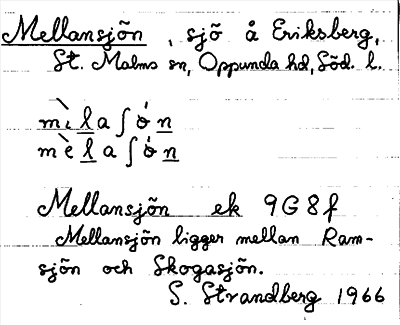 Mellansjön, sjö å Eriksberg,
St. Malms sn, Oppunda hd, Söd. l.
mìlaʃǿn
mèlaʃǿn
Mellansjön ek 9G8f
Mellansjön ligger mellan Ram-
sjön och Skogasjön.
S. Strandberg 1966